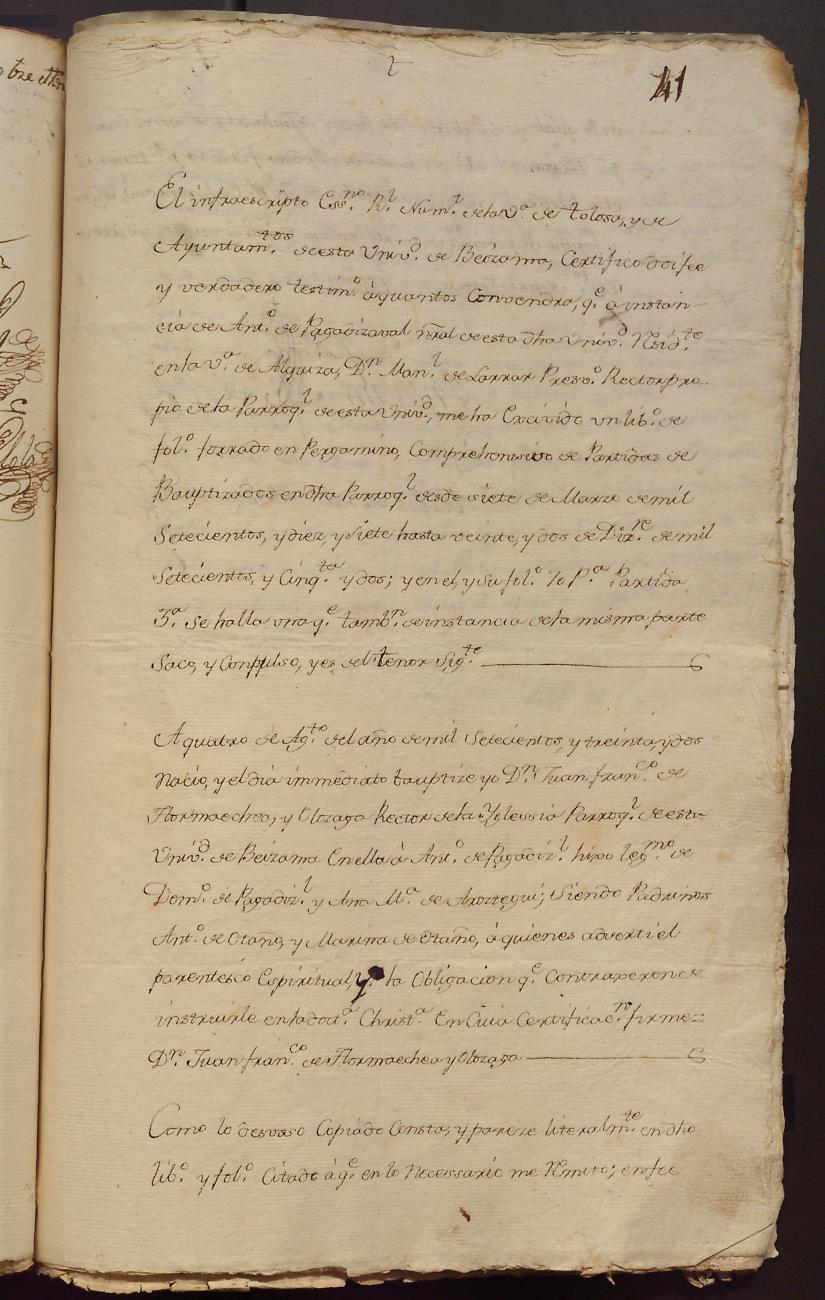 41
El infraescripto Essno. Rl. Numl. de la Va. de Tolosa, y de
Ayuntamtos. de esta Univd. de Beizama, Certifico doi fee
y verdadero testimo. à quantos Convendra, qe. à instan-
cia de Anto. de Pagadizaval nral de esta dha Univd. Residte
en la Va. de Alquiza, Dn. Manl. de Larrar Presvo. Rector pro-
pio de la Parroql. de esta Univd., me ha Exivido vn libo. de
folo. forrado en Pergamino, Comprehensivo de Partidas de
Bauptizados en dha Parroql. desde siete de Marzo de mil
Setecientos, y diez, y Siete hasta veinte, y dos de Dizre. de mil
Setecientos, y Cinqta. y dos; y en el, y su folo. 70 Pa. Partida
3a. Se halla vna qe. tambn. de instancia de la misma parte
Saco, y Conpulso, y es del tenor Sigte.
A quatro de Agto. del año de mil Setecientos, y treinta, y dos
Nacio, y el dia immediato bauptize yo Dn. Juan Franco. de
Flormaechea, y Olozaga Rector de la Yglessia Parroql. de esta
Univd. de Beizama En ella à Anto. de Pagadizl. hixo legmo. de
Domo. de Pagadizl. y Ana Ma. de Aroztegui; Siendo Padrinos
Anto. de Otaño, y Marina de Otaño, à quienes adverti el
parentesco Espiritual, y la Obligacion qe. Contraxeron de
instruirle en la docta. Christa. En Cuia Certificacn. firme=
Dn. Juan Franco. de Flormaechea y Olozaga
Como lo desuso Copiado Consta, y pareze literalmte. en dho
libo. y folo. Citado à qe. en lo Necessario me Remito; en fee